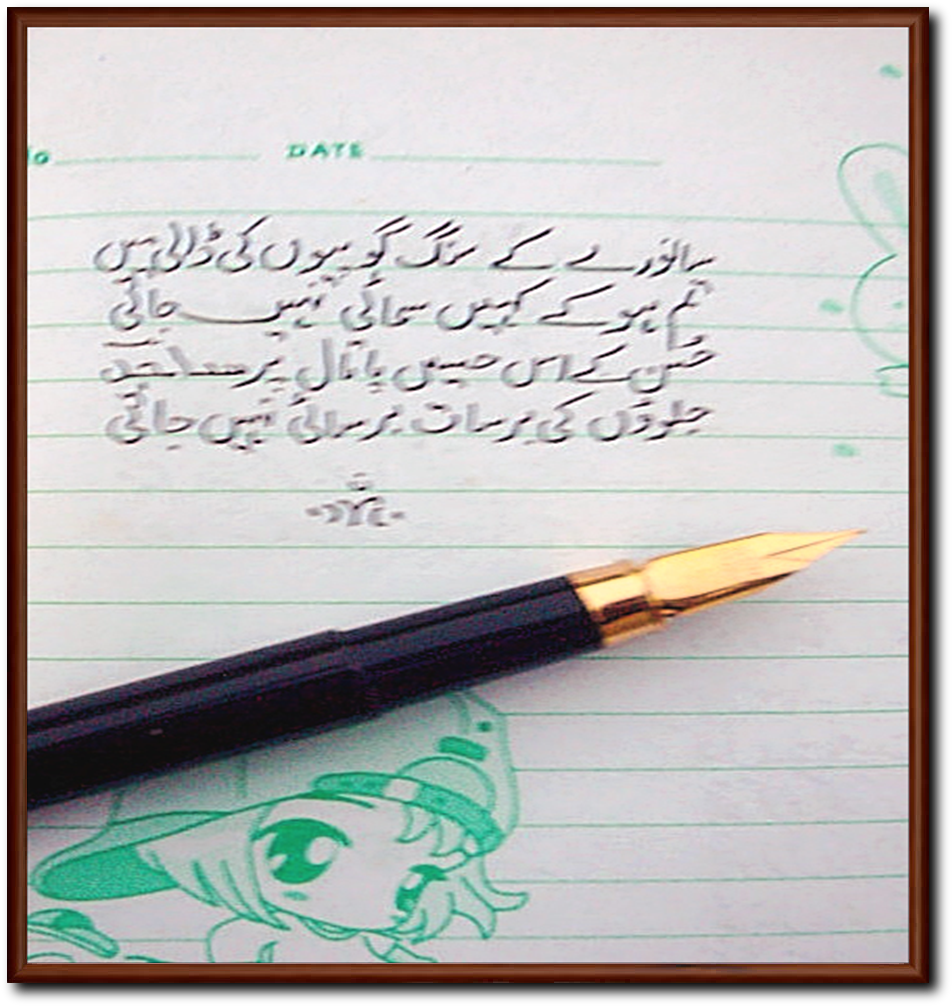 No DATE
سانورے کے سنگ گوپیوں کی ڈالی میں
تم ہو کے کہیں سمائی نہیں جاتی
حُسن کے اس حسیں پامال پر
جلوؤں کی برسات برسائی نہیں جاتی